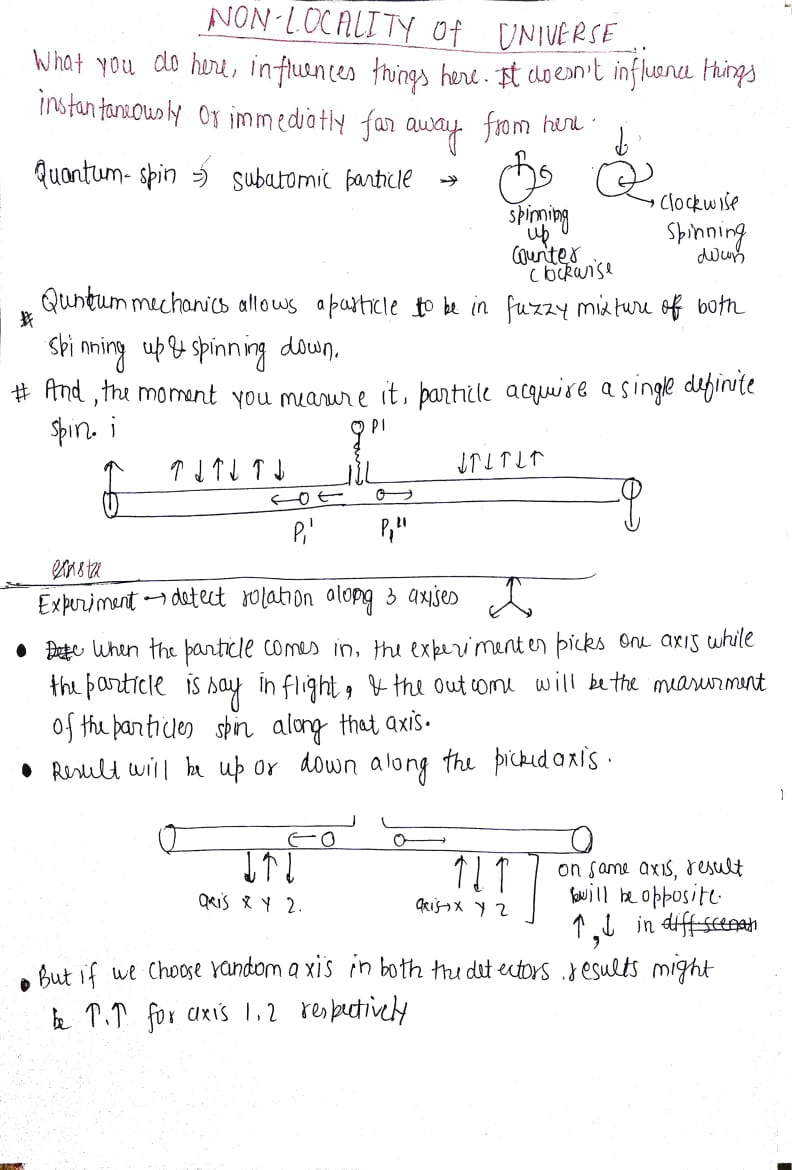 NON-LOCALITY Of UNIVERSE
What you do here, influences things here. It doesn't influence things
instantaneously or immediatly far away from here.
Quantum-spin ⇒ subatomic particle →
spinning
up
counter
clockwise
Clockwise
Spinning
down
# Quntum mechanics allows a particle to be in fuzzy mixture of both
spinning up & spinning down.
# And, the moment you measure it, particle acquire a single definite
spin. i
P1
↑ ↓ ↑ ↓ ↑ ↓
↓ ↑ ↓ ↑ ↓ ↑
P1' P1''
Experiment → detect rotation along 3 axises
• When the particle comes in, the experimenter picks one axis while
the particle is say in flight, & the outcome will be the measurment
of the particles spin along that axis.
• Result will be up or down along the picked axis.
↓ ↑ ↓
axis X Y Z.
↑ ↓ ↑
axis→X Y Z
on same axis, result
will be opposite.
↑, ↓ in
• But if we choose random axis in both the detectors. results might
be ↑.↑ for axis 1,2 respectively